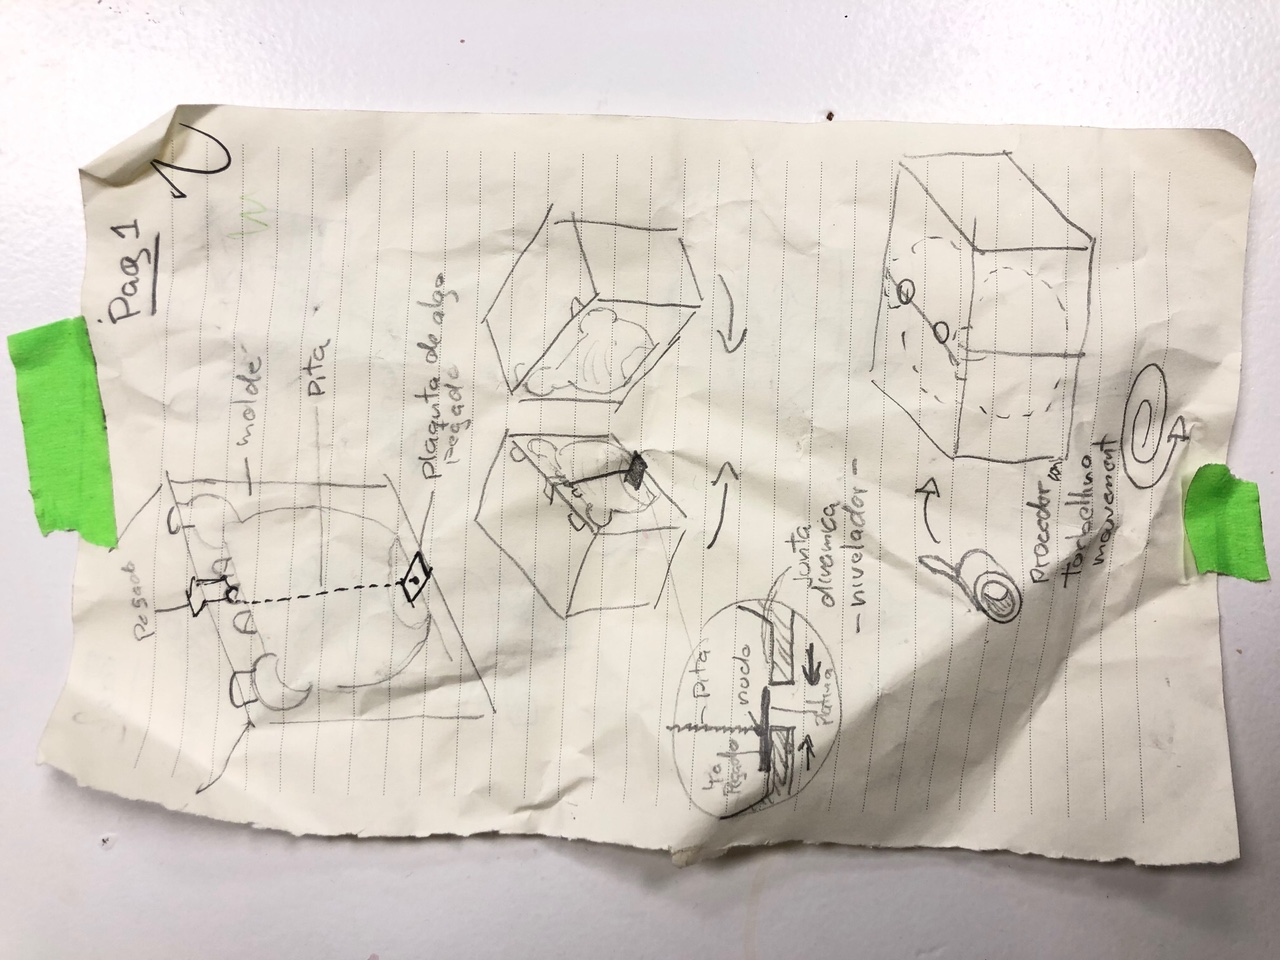 Pag 1
Pegado
molde
Pita
plaquta de algo
Pegado
Pita
Ya
Pegado
nudo
Platina
junta
dinamica
- nivelador -
proceder con
torbellino
mouvement